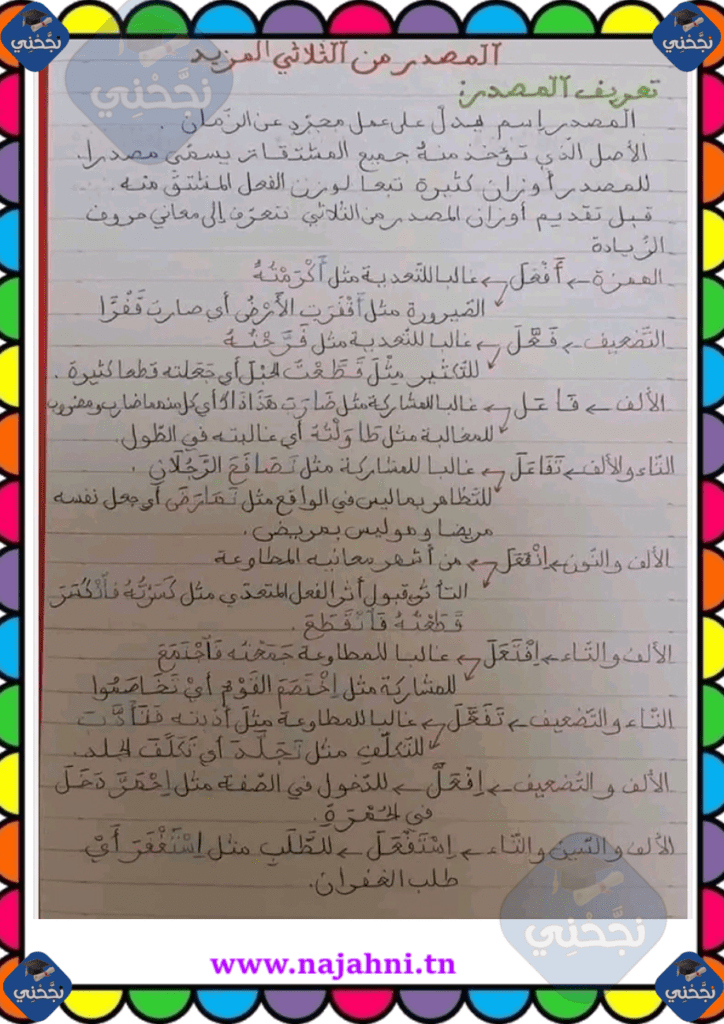 نجّحْنِي
نجّحْنِي
نجّحْنِي
المصدر من الثلاثي المزيد
تعريف المصدر:
المصدر إسم يدلّ على عمل مجرّد عن الزّمان .
الأصل الّذي تؤخذ منهُ جميع المشتقات يسمّى مصدرا.
للمصدر أوزان كثيرة تبعا لوزن الفعل المشتقّ منه .
قبل تقديم أوزان المصدر من الثلاثي نتعرّف إلى معاني حروف
الزّيادة
الهمزة ← أَفْعَلَ ← غالبا للتعدية مثل أَكْرَمْتُهُ
الصّيرورة مثل أَقْفَرَتِ الأَرْضُ أي صارت قَفْرًا
التّضعيف ← فَعَّلَ ← غالبا للتّعدية مثل فَرَّحْتُهُ
للتكثير مِثْلَ قَطَّعْتُ الحَبْلَ أي جَعلته قطعا كثيرة .
الألف ← فَاعَلَ ← غالبا للمشاركة مثل ضَارَبَ هَذَا ذَاكَ أي كل منهما ضارب ومضروب
للمغالبة مثل طَاوَلْتُهُ أي غالبته في الطّول.
التّاء والألف ← تَفَاعَلَ ← غالبا للمشاركة مثل تَصَافَحَ الرَّجُلَانِ .
للتّظاهر بما ليس في الواقع مثل تَمَارَضَ أي جعل نفسه
مريضا وهو ليس بمريض .
الألف والنّون ← اِنْفَعَلَ ← من أشهر معانيه المطاوعة
التأثّي قبول أثر الفعل المتعدّي مثل كَسَرْتُهُ فَانْكَسَرَ
قَطَعْتُهُ فَانْقَطَعَ .
الألف والتّاء ← اِفْتَعَلَ ← غالبا للمطاوعة جَمَعْتُه فَاجْتَمَعَ
للمشاركة مثل اِخْتَصَمَ القَوْمُ أيْ تَخَاصَمُوا
التّاء والتّضعيف ← تَفَعَّلَ ← غالبا للمطاوعة مثل أدّبته فَتَأَدَّبَ
للتّكلّفِ مثل تَجَلَّدَ أي تَكَلَّفَ الجلد.
الألف والتّضعيف ← اِفْعَلَّ ← للدّخول في الصّفة مثل اِحْمَرَّ دَخَلَ
في الحُمْرَةِ .
الألف والسّين والتّاء ← اِسْتَفْعَلَ ← للطَّلَبِ مثل اِسْتَغْفَرَ أَيْ
طلب الغفران.
نجّحْنِي
www.najahni.tn
نجّحْنِي
نجّحْنِي